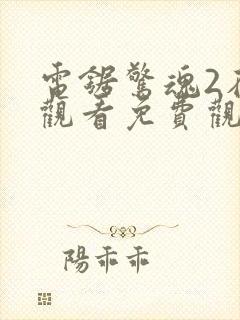 電鋸驚魂2在
觀看免費觀
陽乖乖